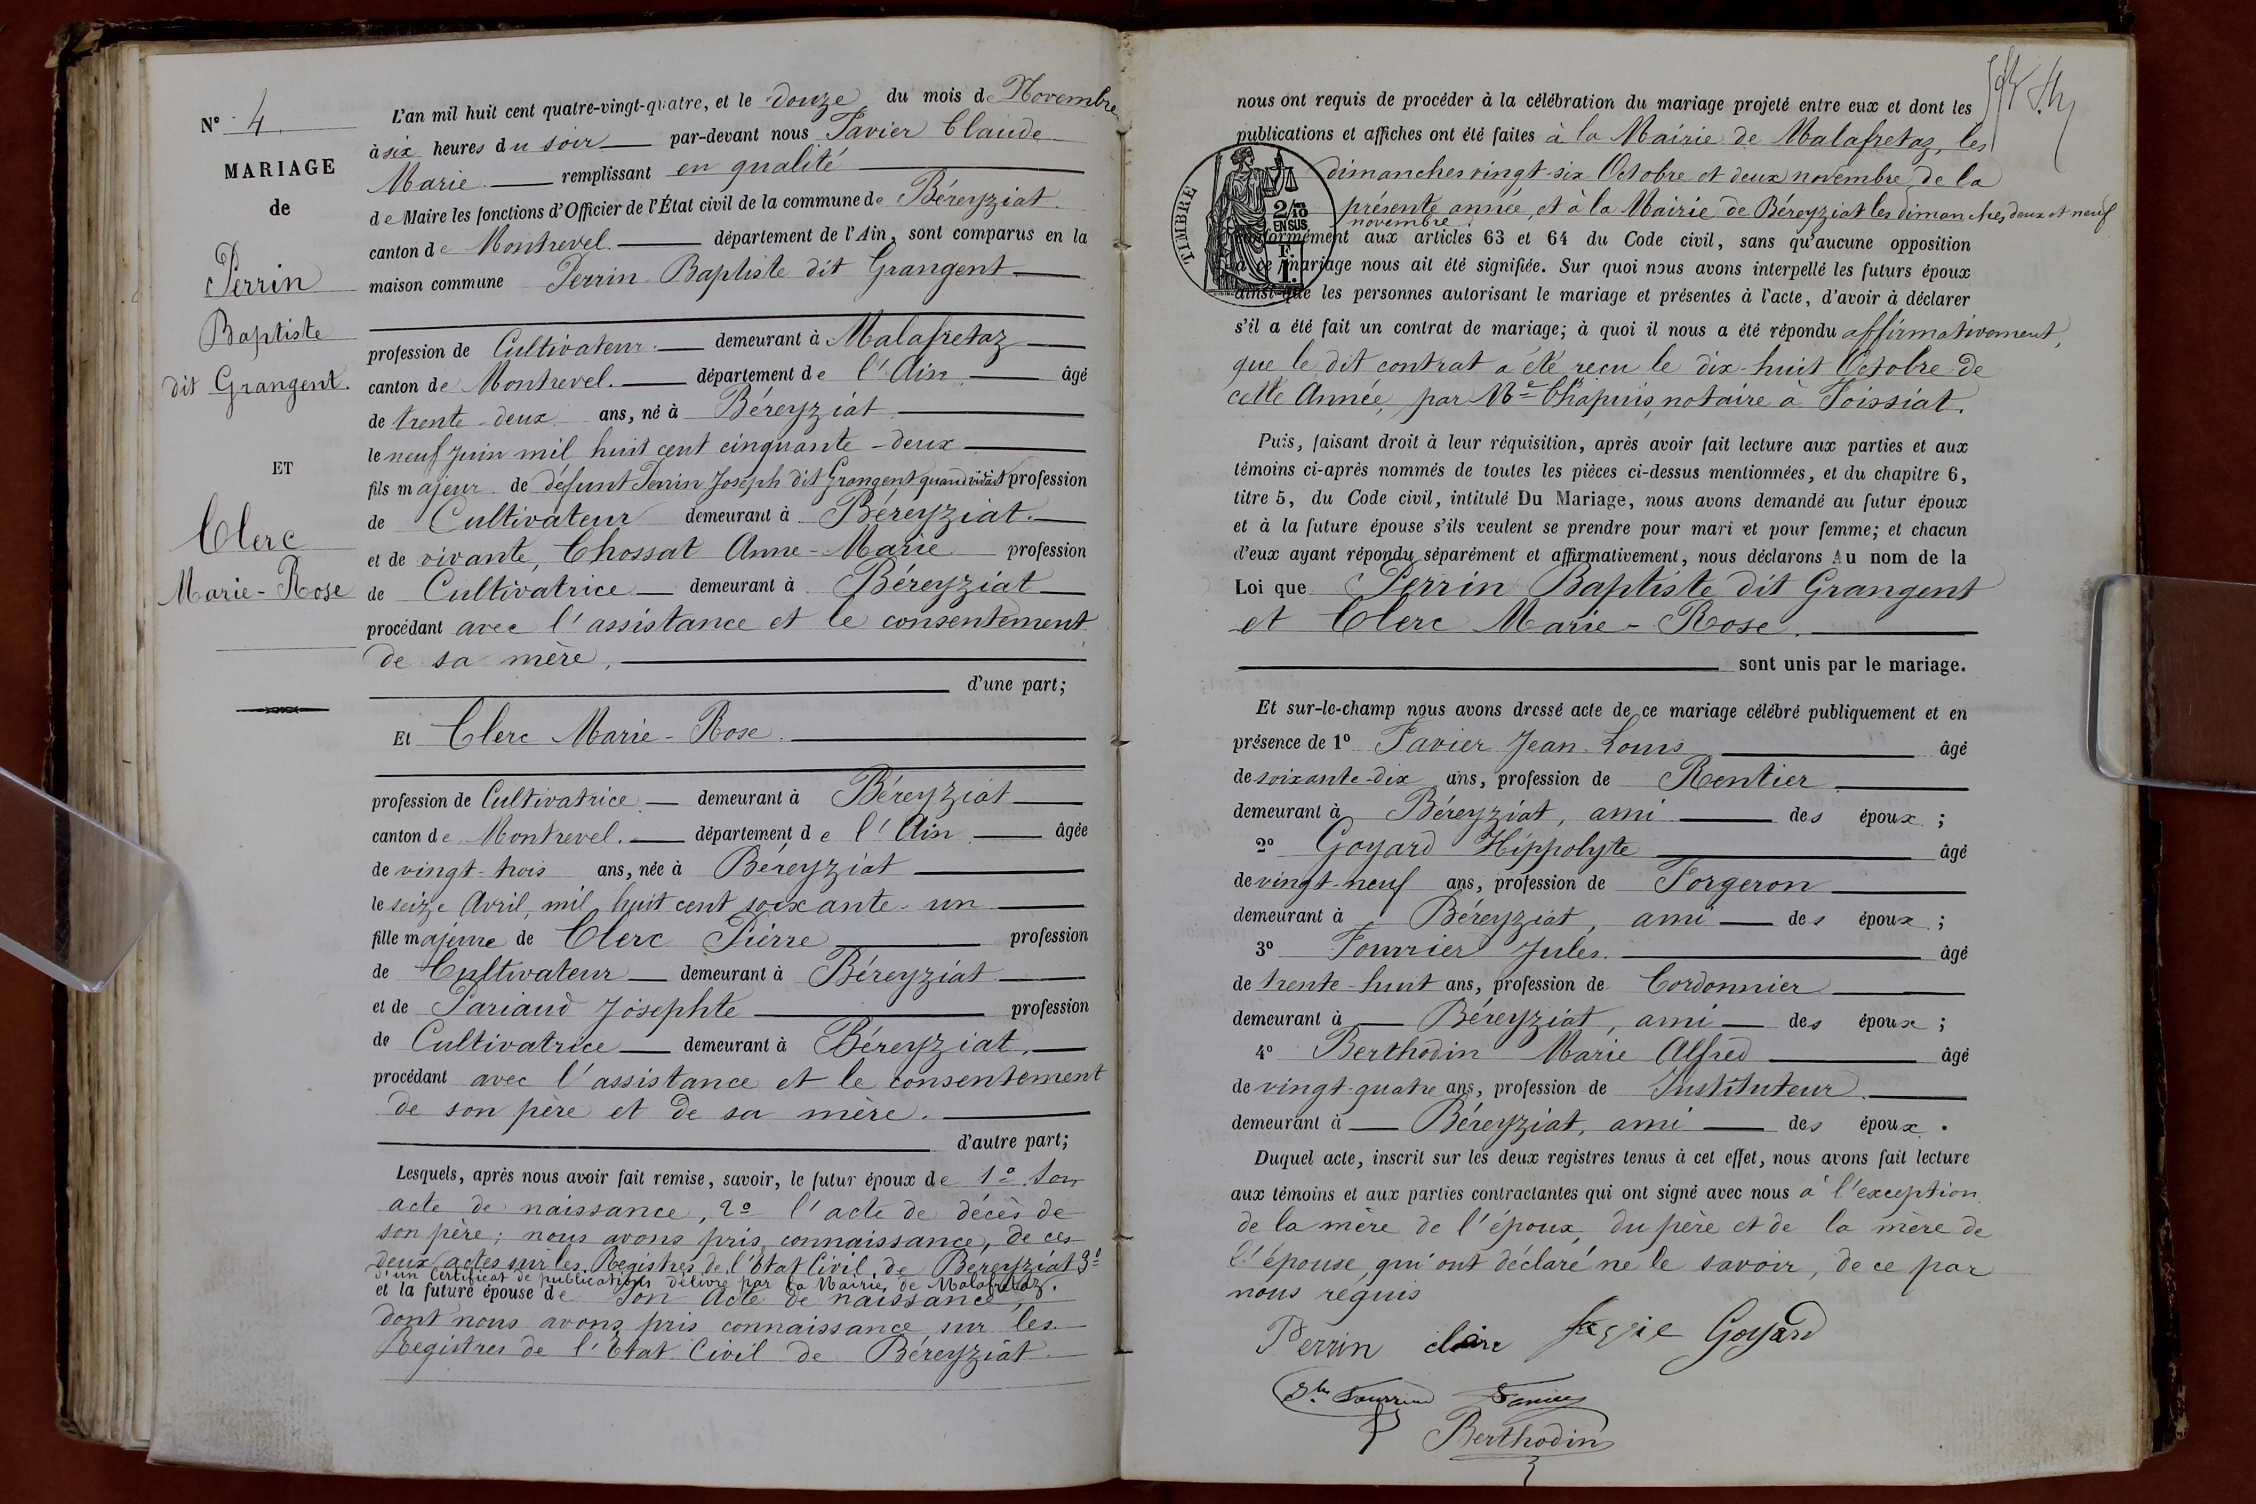 N° 4
MARIAGE
de
Perrin
Baptiste
dit Grangent.
ET
Clerc
Marie-Rose
L'an mil huit cent quatre-vingt-quatre, et le douze du mois de Novembre
à six heures du soir par-devant nous Favier Claude
Marie remplissant en qualité
de Maire les fonctions d'Officier de l'État civil de la commune de Béreyziat.
canton de Montrevel. département de l'Ain, sont comparus en la
maison commune Perrin Baptiste dit Grangent
profession de Cultivateur. demeurant à Malafretaz
canton de Montrevel. département de l'Ain âgé
de trente-deux ans, né à Béreyziat
le neuf Juin mil huit cent cinquante-deux
fils majeur de défunt Perrin Joseph dit Grangent quand vivait profession
de Cultivateur demeurant à Béreyziat.
et de vivante, Chossat Anne-Marie profession
de Cultivatrice demeurant à Béreyziat
procédant avec l'assistance et le consentement
de sa mère,
d'une part;
Et Clerc Marie-Rose.
profession de Cultivatrice demeurant à Béreyziat
canton de Montrevel. département de l'Ain âgée
de vingt-trois ans, née à Béreyziat
le seize Avril, mil huit cent soixante-un
fille majeure de Clerc Pierre profession
de Cultivateur demeurant à Béreyziat
et de Pariaud Josephte profession
de Cultivatrice demeurant à Béreyziat.
procédant avec l'assistance et le consentement
de son père et de sa mère.
d'autre part;
Lesquels, après nous avoir fait remise, savoir, le futur époux de 1° son
acte de naissance, 2° l'acte de décès de
son père; nous avons pris connaissance, de ces
deux actes sur les Registres de l'État Civil de Béreyziat 3°
d'un Certificat de publications délivré par la Mairie de Malafretaz.
et la future épouse de son acte de naissance,
dont nous avons pris connaissance sur les
Registres de l'État Civil de Béreyziat.
nous ont requis de procéder à la célébration du mariage projeté entre eux et dont les
publications et affiches ont été faites à la Mairie de Malafretaz, les
dimanches vingt-six Octobre et deux novembre de la
présente année, et à la Mairie de Béreyziat les dimanches deux et neuf
novembre.
TIMBRE
2/10
EN SUS
F.
1.
conformément aux articles 63 et 64 du Code civil, sans qu'aucune opposition
à ce mariage nous ait été signifiée. Sur quoi nous avons interpellé les futurs époux
ainsi que les personnes autorisant le mariage et présentes à l'acte, d'avoir à déclarer
s'il a été fait un contrat de mariage; à quoi il nous a été répondu affirmativement,
que le dit contrat a été reçu le dix-huit Octobre de
cette Année, par Me Chapuis, notaire à Foissiat.
Puis, faisant droit à leur réquisition, après avoir fait lecture aux parties et aux
témoins ci-après nommés de toutes les pièces ci-dessus mentionnées, et du chapitre 6,
titre 5, du Code civil, intitulé Du Mariage, nous avons demandé au futur époux
et à la future épouse s'ils veulent se prendre pour mari et pour femme; et chacun
d'eux ayant répondu séparément et affirmativement, nous déclarons Au nom de la
Loi que Perrin Baptiste dit Grangent
et Clerc Marie-Rose.
sont unis par le mariage.
Et sur-le-champ nous avons dressé acte de ce mariage célébré publiquement et en
présence de 1° Favier Jean-Louis âgé
de soixante-dix ans, profession de Rentier
demeurant à Béreyziat, ami des époux;
2° Goyard Hippolyte âgé
de vingt-neuf ans, profession de Forgeron
demeurant à Béreyziat, ami des époux;
3° Fourrier Jules. âgé
de trente-huit ans, profession de Cordonnier
demeurant à Béreyziat, ami des époux;
4° Berthodin Marie Alfred âgé
de vingt-quatre ans, profession de Instituteur.
demeurant à Béreyziat, ami des époux.
Duquel acte, inscrit sur les deux registres tenus à cet effet, nous avons fait lecture
aux témoins et aux parties contractantes qui ont signé avec nous à l'exception
de la mère de l'époux, du père et de la mère de
l'épouse qui ont déclaré ne le savoir, de ce par
nous requis
Perrin Goyard
Favier
Berthodin